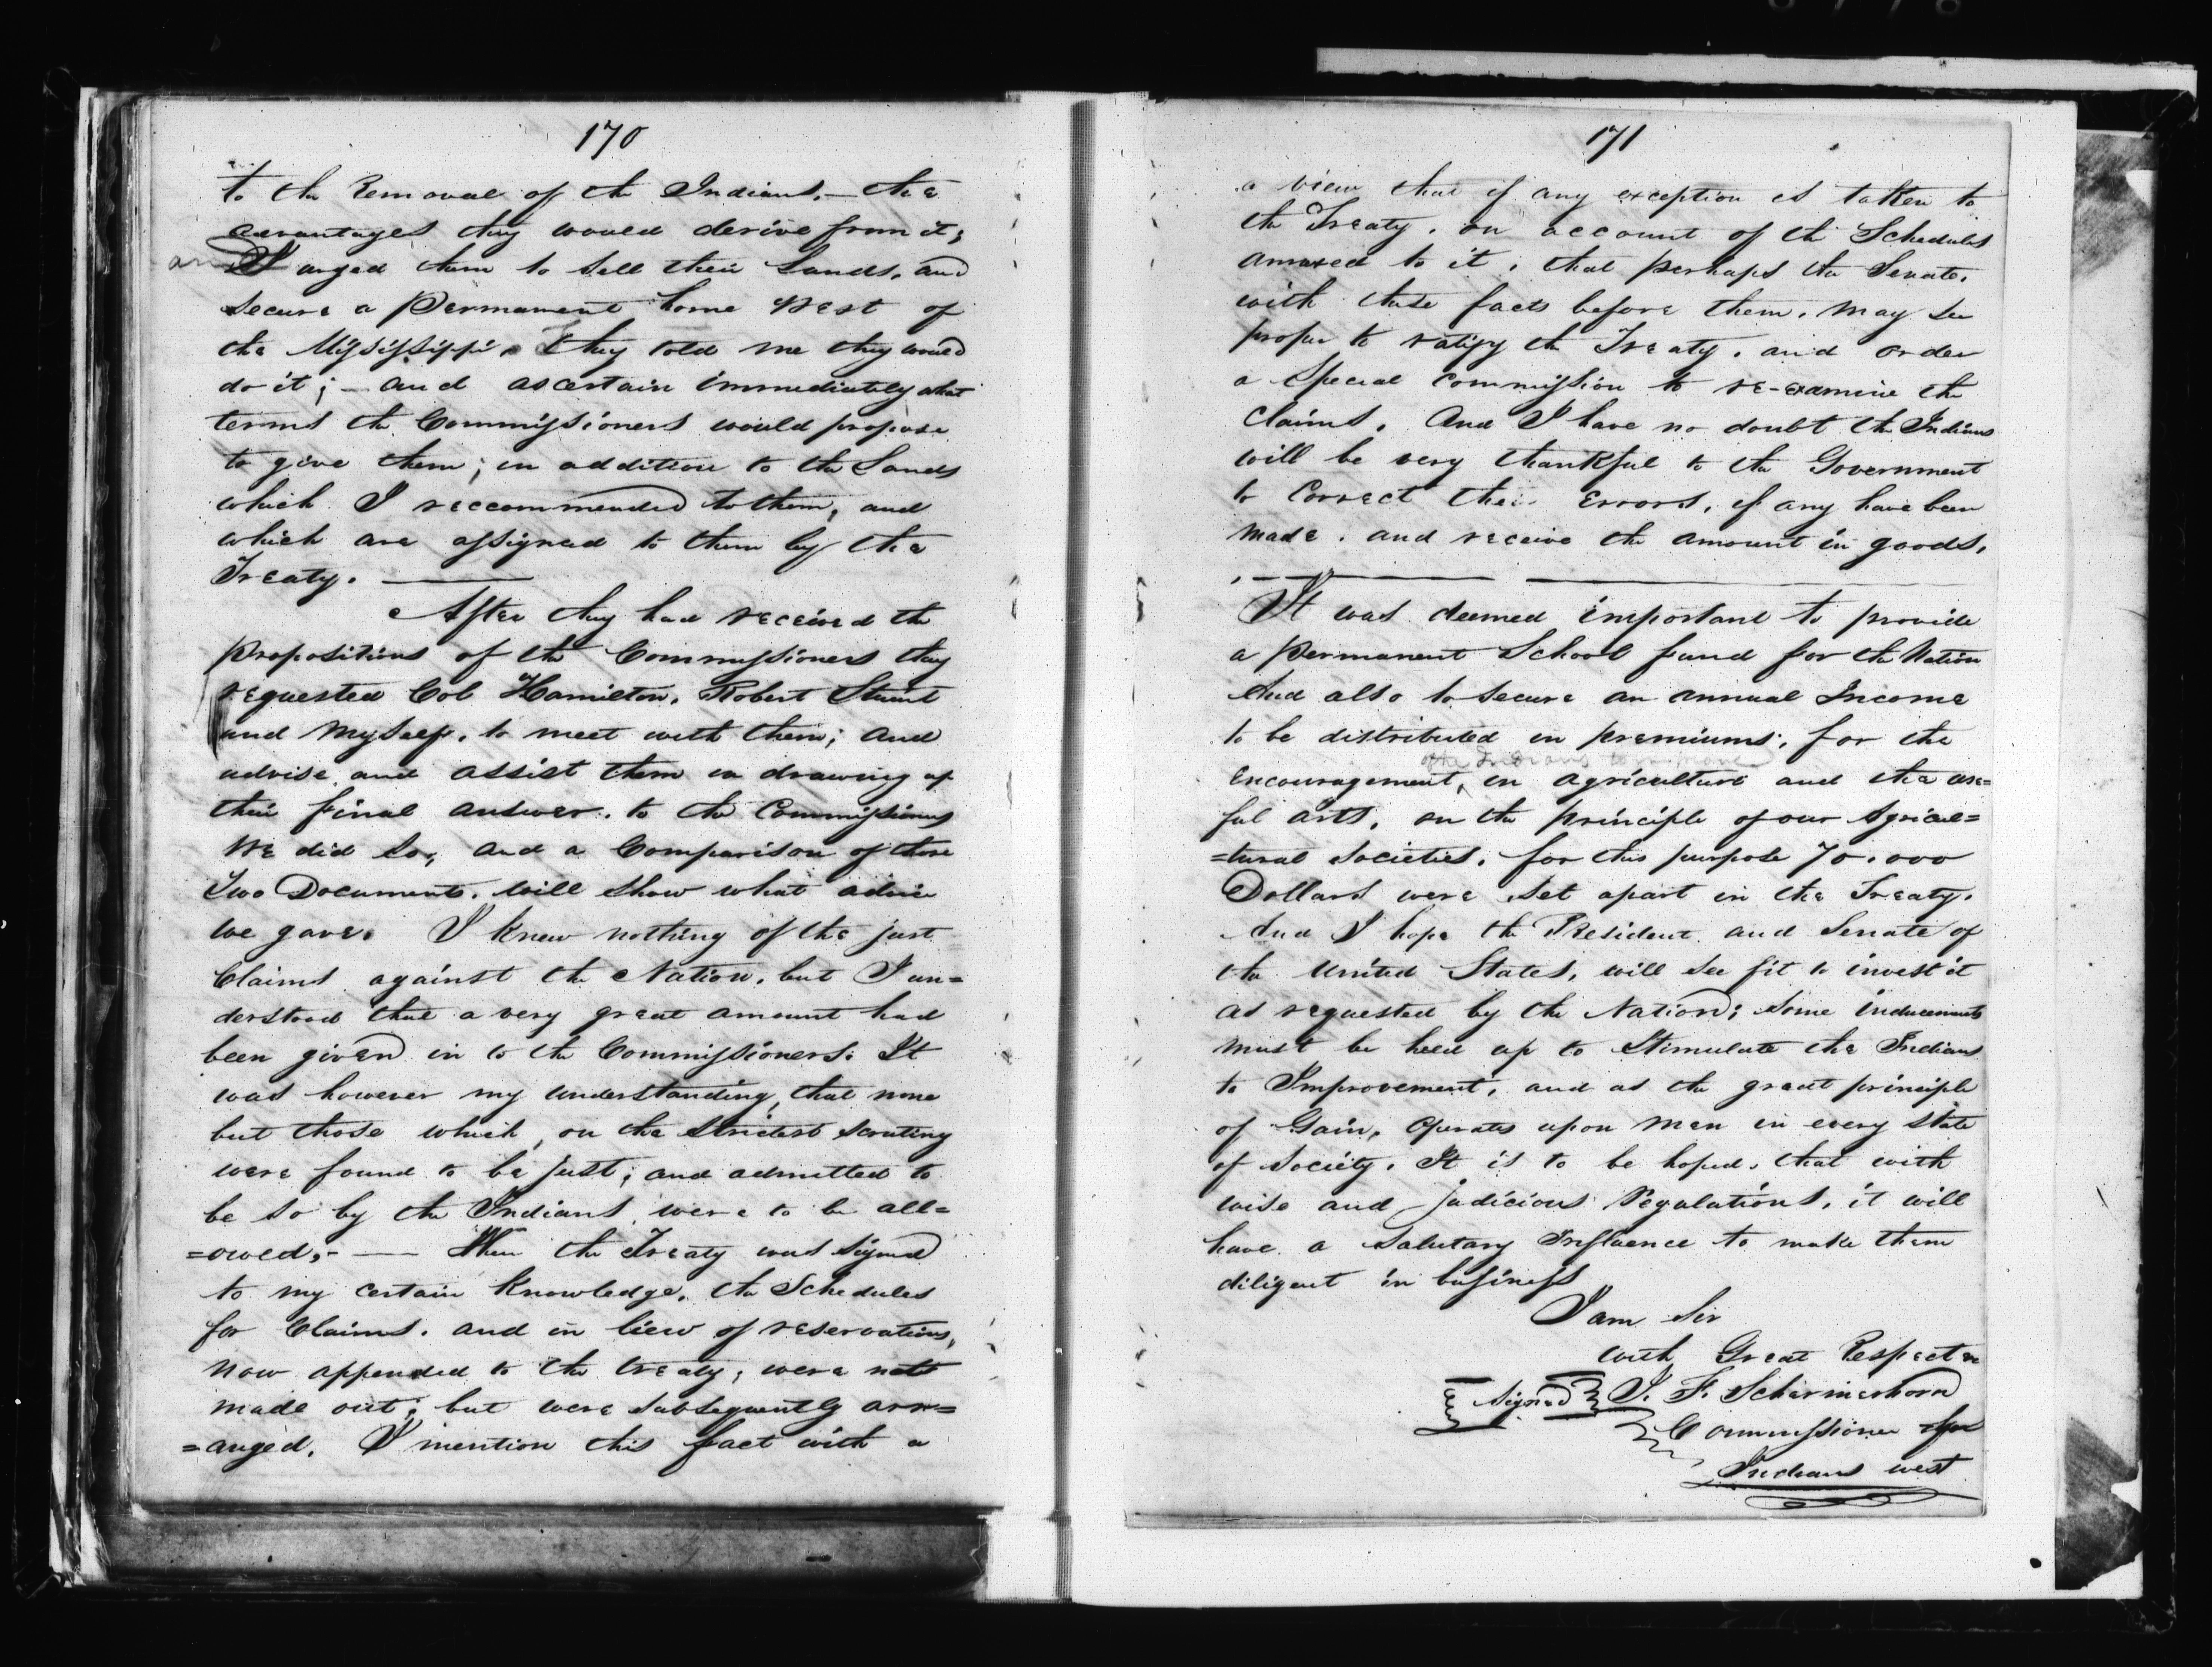 170
to the Removal of the Indians,— the
advantages they would derive from it;
and I urged them to sell their Lands, and
secure a permanent home West of
the Missisippi. They told me they would
do it; — and ascertain immediately what
terms the Commissioners would propose
to give them; in addition to the Lands
which I reccommended to them, and
which are assigned to them by the
Treaty. ———
After they had received the
propositions of the Commissioners they
requested Col Hamilton, Robert Stuart
and myself, to meet with them; and
advise and assist them in drawing up
their final answer, to the Commissioners
We did so, and a Comparison of these
Two Documents, will show what advice
we gave. I knew nothing of the just
Claims against the Nation, but I un=
derstood that a very great amount had
been given in to the Commissioners. It
was however my understanding, that none
but those which, on the strictest scrutiny
were found to be just; and admitted to
be so by the Indians, were to be all=
=owed,- —— When the Treaty was signed
to my certain Knowledge, the Schedules
for Claims, and in liew of reservations,
now appended to the treaty, were not
made out; but were subsequently arr=
=anged. I mention this fact with a
171
a view that if any exception is taken to
the Treaty, on account of the Schedules
annexed to it, that perhaps the Senate,
with these facts before them, may see
proper to ratify the Treaty, and order
a special commission to re-examine the
claims. And I have no doubt the Indians
will be very thankful to the Government
to Correct their Errors, if any have been
made, and receive the amount in goods.
It was deemed important to provide
a permanent School fund for the Nation
And also to secure an annual Income
to be distributed in premiums, for the
of the Indians
encouragement, in agriculture and the use=
ful arts, on the principle of our Agricul=
=tural Societies, for this purpose 70.000
Dollars were set apart in the Treaty.
And I hope the President and Senate of
the United States, will see fit to invest it
as requested by the Nation; some inducements
must be held up to stimulate the Indians
to Improvement, and as the great principle
of Gain, operates upon men in every state
of society. It is to be hoped, that with
wise and judicious Regulations, it will
have a salutary Influence to make them
diligent in business
I am Sir
with Great Respect
Signed J. F. Schermerhorn
Commissioner for
Indians west